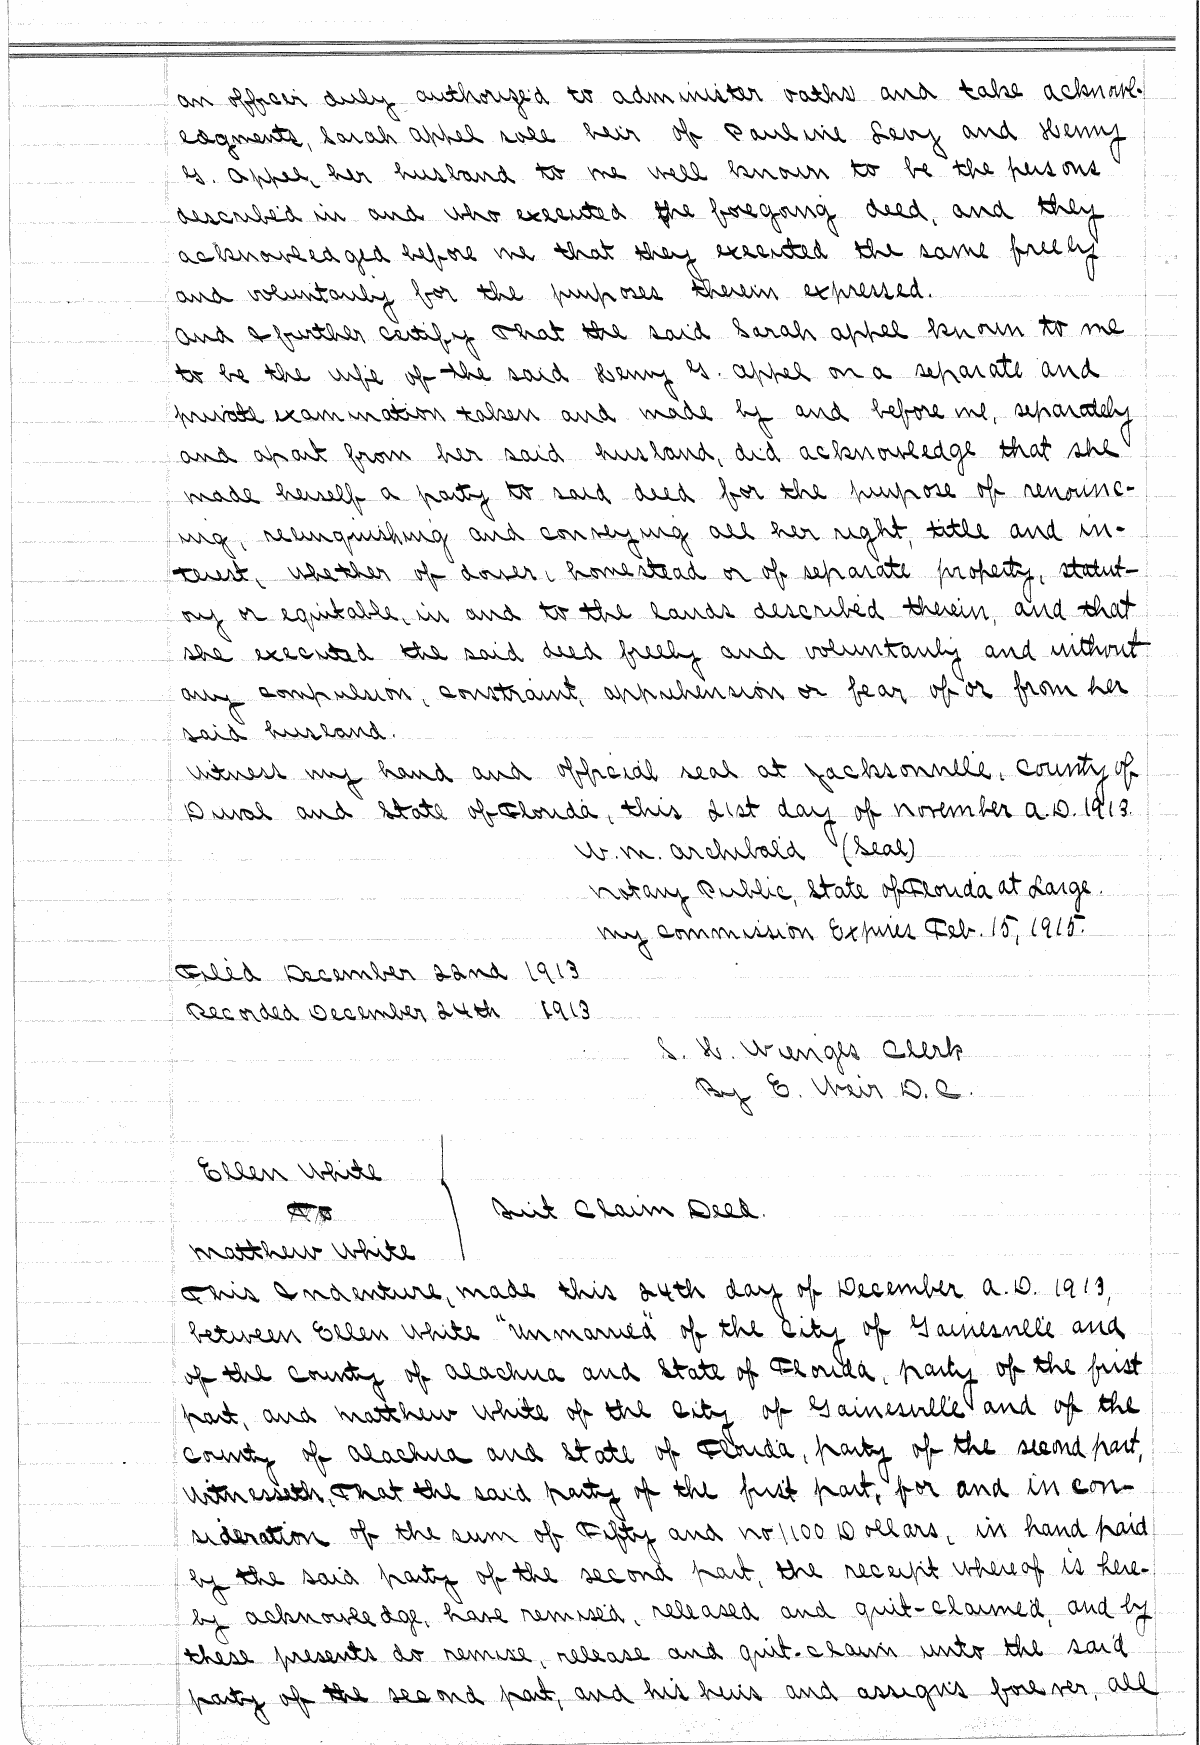 an officer duly authorized to administer oaths and take acknowl-
edgments, Sarah Appel sole heir of Pauline Levy and Henry
G. Appel, her husband to me well known to be the persons
described in and who executed the foregoing deed, and they
acknowledged before me that they executed the same freely
and voluntarily for the purposes therein expressed.
And I further certify That the said Sarah Appel known to me
to be the wife of the said Henry G. Appel on a separate and
private examination taken and made by and before me, separately
and apart from her said husband, did acknowledge that she
made herself a party to said deed for the purpose of renounc-
ing, relinquishing and conveying all her right, title and in-
terest, whether of dower, homestead or of separate property, statut-
ory or equitable, in and to the lands described therein, and that
she executed the said deed freely and voluntarily and without
any compulsion, constraint, apprehension or fear of or from her
said husband.
Witness my hand and official seal at Jacksonville, County of
Duval and State of Florida, this 21st day of November A.D. 1913.
W. M. Archibald (Seal)
Notary Public, State of Florida at Large.
My Commission Expires Feb. 15, 1915.
Filed December 22nd 1913
Recorded December 24th 1913
S. H. Wienges Clerk
By E. Weir D.C.
Ellen White
To
Quit Claim Deed.
Matthew White
This Indenture, made this 24th day of December A.D. 1913,
between Ellen White "Unmarried" of the City of Gainesville and
of the County of Alachua and State of Florida, party of the first
part, and Matthew White of the City of Gainesville and of the
County of Alachua and State of Florida, party of the second part,
Witnesseth, That the said party of the first part, for and in con-
sideration of the sum of Fifty and no/100 Dollars, in hand paid
by the said party of the second part, the receipt whereof is here-
by acknowledge, have remised, released and quit-claimed, and by
these presents do remise, release and quit-claim unto the said
party of the second part, and his heirs and assigns forever, all